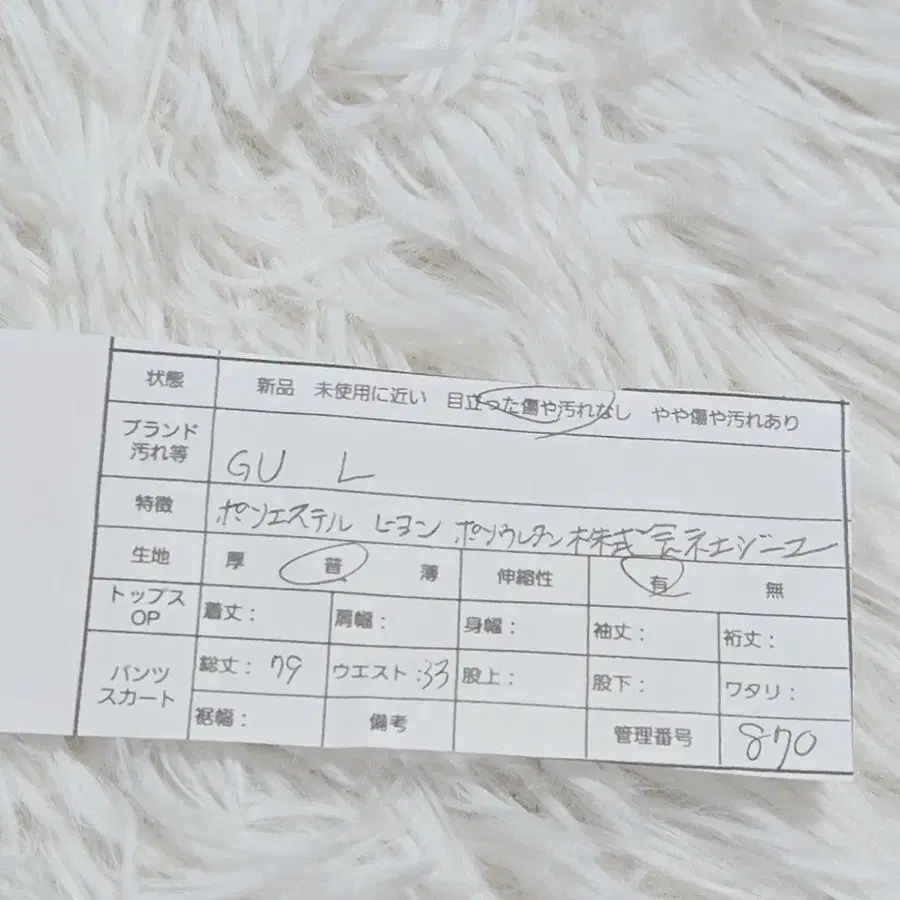 状態 新品 未使用に近い 目立った傷や汚れなし やや傷や汚れあり
ブランド
汚れ等
GU L
特徴 ポリエステル レーヨン ポリウレタン 株式会社ジーユー
生地 厚 普 薄 伸縮性 有 無
トップス
OP
着丈: 肩幅: 身幅: 袖丈: 裄丈:
パンツ
スカート
総丈:79 ウエスト:33 股上: 股下: ワタリ:
裾幅: 備考 管理番号 870